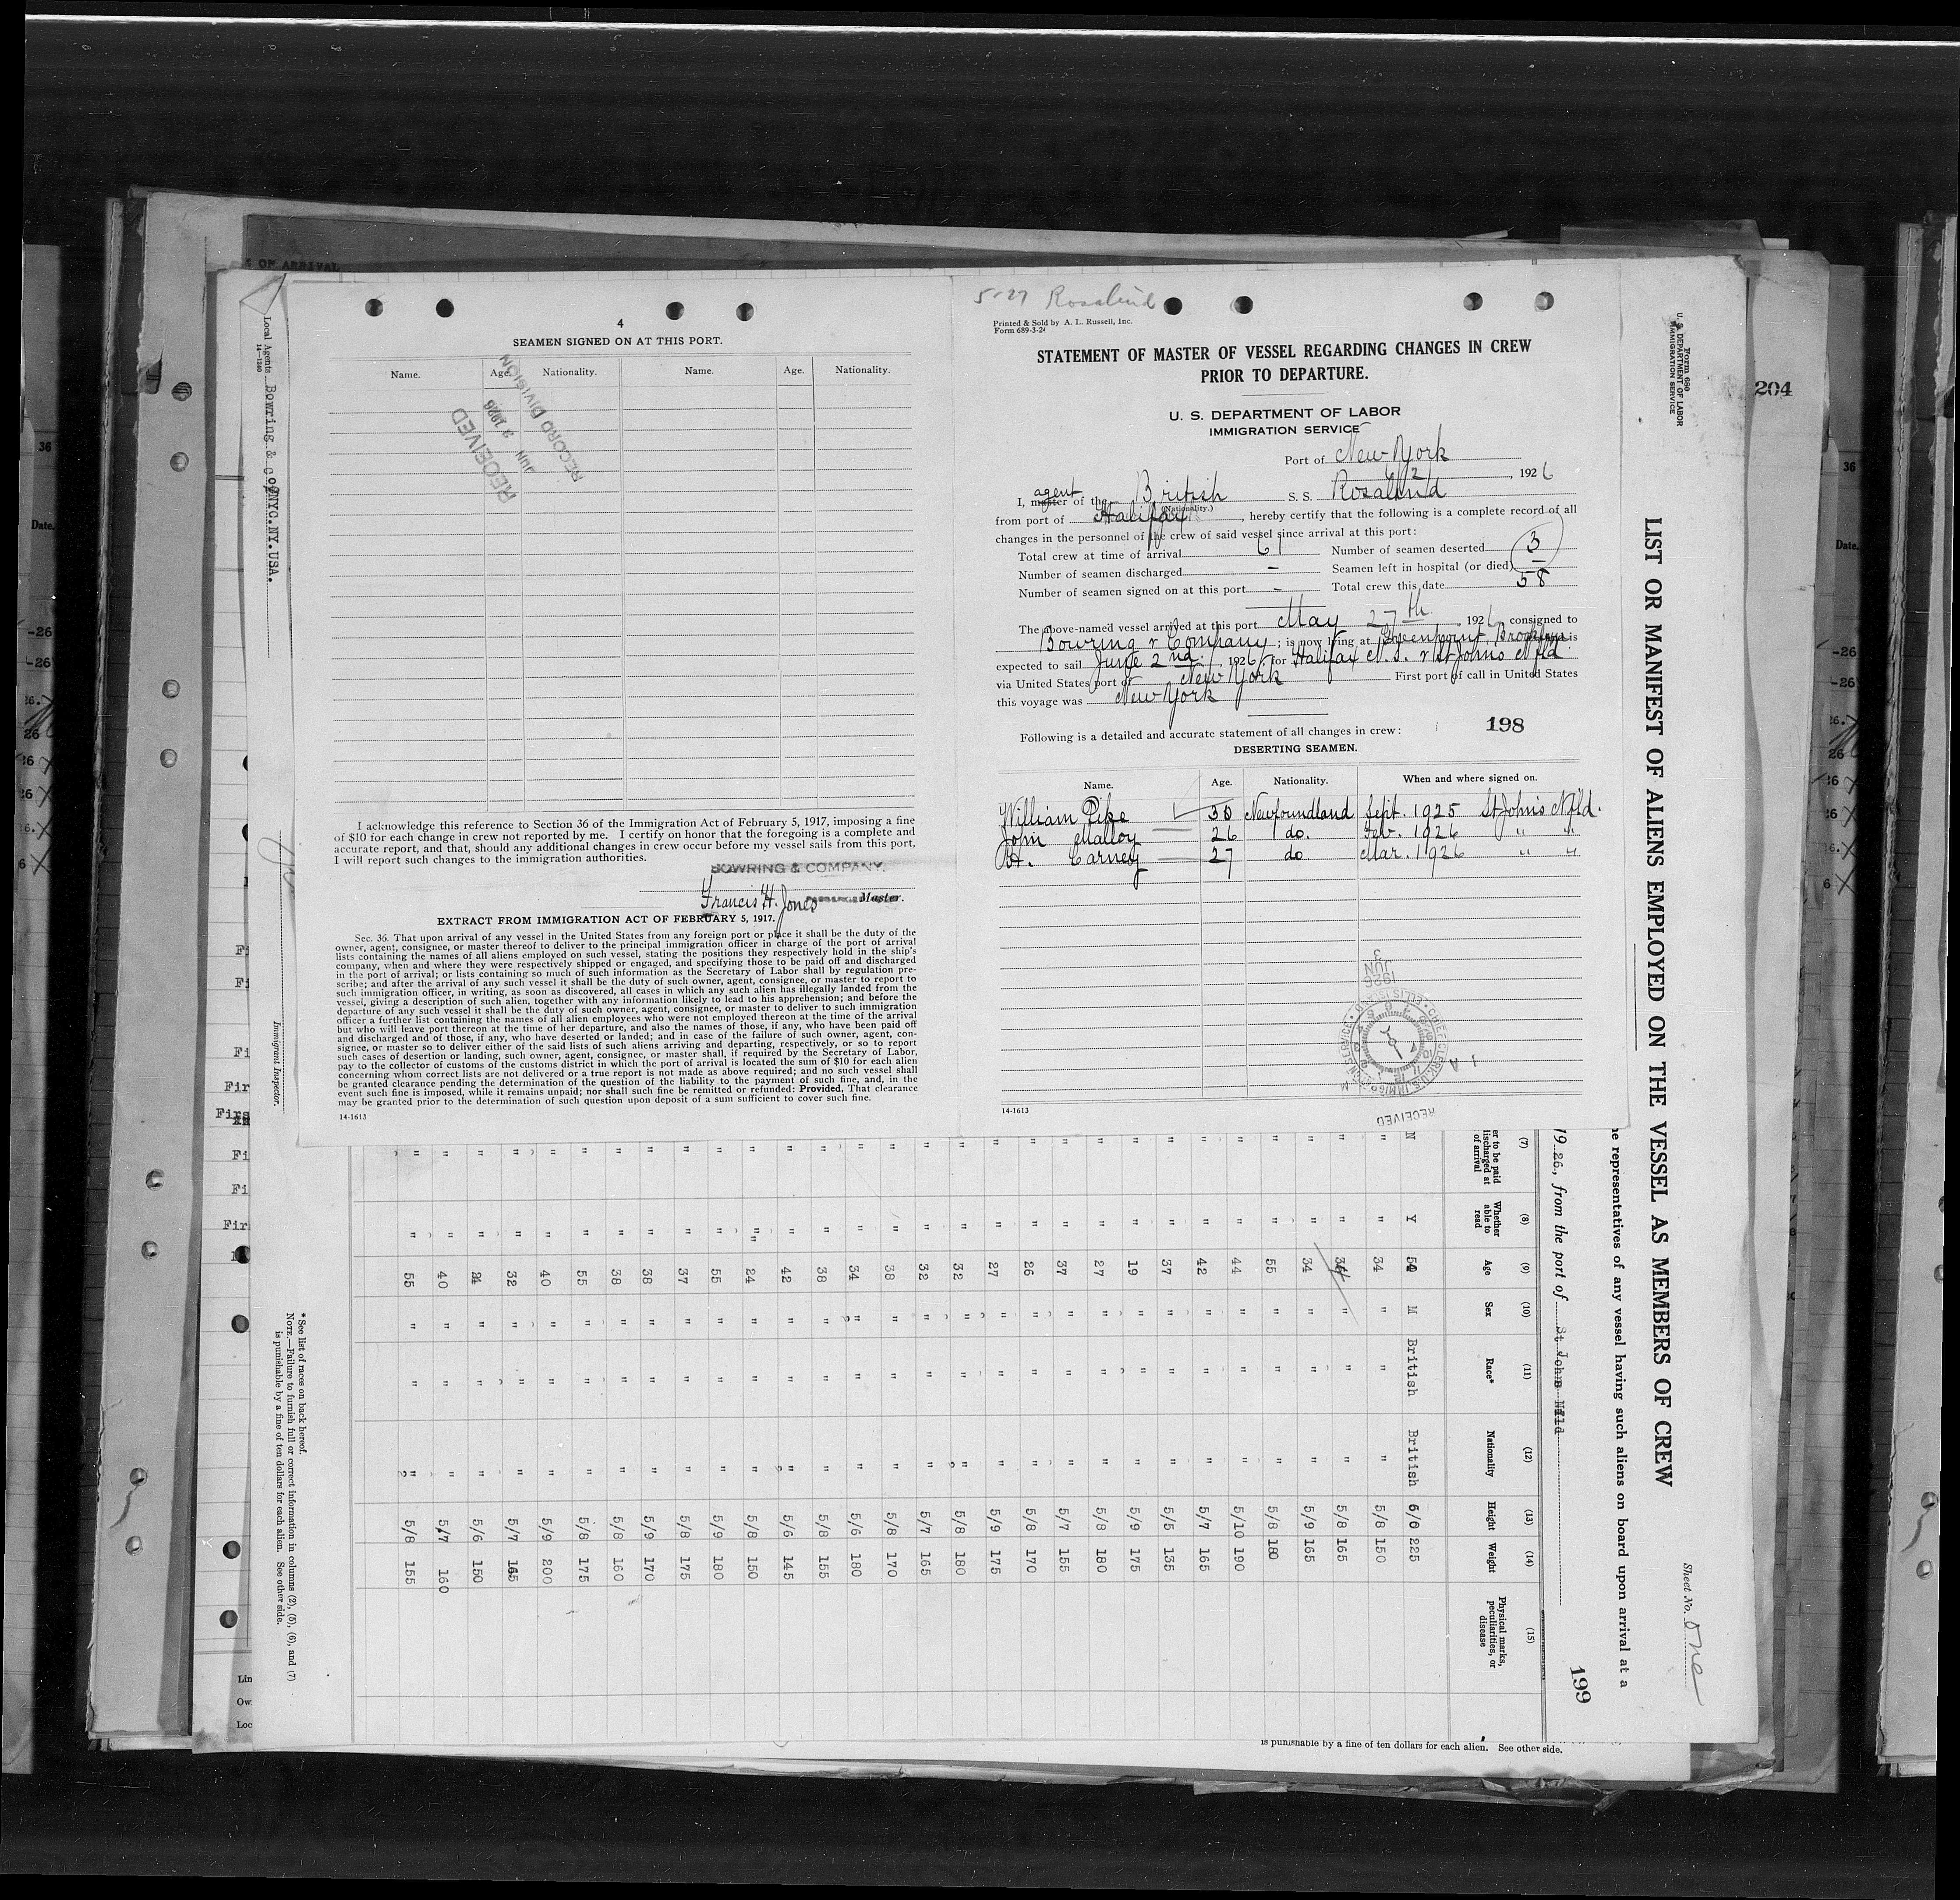 4
SEAMEN SIGNED ON AT THIS PORT.
Name. Age. Nationality. Name. Age. Nationality.
RECEIVED
JUN 3 1926
RECORD DIVISION
I acknowledge this reference to Section 36 of the Immigration Act of February 5, 1917, imposing a fine
of $10 for each change in crew not reported by me. I certify on honor that the foregoing is a complete and
accurate report, and that, should any additional changes in crew occur before my vessel sails from this port,
I will report such changes to the immigration authorities.
BOWRING & COMPANY.
Francis H. Jones Master.
EXTRACT FROM IMMIGRATION ACT OF FEBRUARY 5, 1917.
Sec. 36. That upon arrival of any vessel in the United States from any foreign port or place it shall be the duty of the
owner, agent, consignee, or master thereof to deliver to the principal immigration officer in charge of the port of arrival
lists containing the names of all aliens employed on such vessel, stating the positions they respectively hold in the ship's
company, when and where they were respectively shipped or engaged, and specifying those to be paid off and discharged
in the port of arrival; or lists containing so much of such information as the Secretary of Labor shall by regulation pre-
scribe; and after the arrival of any such vessel it shall be the duty of such owner, agent, consignee, or master to report to
such immigration officer, in writing, as soon as discovered, all cases in which any such alien has illegally landed from the
vessel, giving a description of such alien, together with any information likely to lead to his apprehension; and before the
departure of any such vessel it shall be the duty of such owner, agent, consignee, or master to deliver to such immigration
officer a further list containing the names of all alien employees who were not employed thereon at the time of the arrival
but who will leave port thereon at the time of her departure, and also the names of those, if any, who have been paid off
and discharged and of those, if any, who have deserted or landed; and in case of the failure of such owner, agent, con-
signee, or master so to deliver either of the said lists of such aliens arriving and departing, respectively, or so to report
such cases of desertion or landing, such owner, agent, consignee, or master shall, if required by the Secretary of Labor,
pay to the collector of customs of the customs district in which the port of arrival is located the sum of $10 for each alien
concerning whom correct lists are not delivered or a true report is not made as above required; and no such vessel shall
be granted clearance pending the determination of the question of the liability to the payment of such fine, and, in the
event such fine is imposed, while it remains unpaid; nor shall such fine be remitted or refunded: Provided, That clearance
may be granted prior to the determination of such question upon deposit of a sum sufficient to cover such fine.
14-1613
5-27 Rosalind
Printed & Sold by A. L. Russell, Inc.
Form 689-3-24
STATEMENT OF MASTER OF VESSEL REGARDING CHANGES IN CREW
PRIOR TO DEPARTURE.
U. S. DEPARTMENT OF LABOR
IMMIGRATION SERVICE
Port of New York
6/2, 1926
I, agent master of the British S. S. Rosalind
(Nationality.)
from port of Halifax, hereby certify that the following is a complete record of all
changes in the personnel of the crew of said vessel since arrival at this port:
Total crew at time of arrival 61 Number of seamen deserted 3
Number of seamen discharged - Seamen left in hospital (or died) -
Number of seamen signed on at this port - Total crew this date 58
The above-named vessel arrived at this port May 27th, 1926, consigned to
Bowring & Company; is now lying at Greenpoint, Brooklyn is
expected to sail June 2nd, 1926, for Halifax N.S. & St Johns Nfld.
via United States port of New York First port of call in United States
this voyage was New York
198
Following is a detailed and accurate statement of all changes in crew:
DESERTING SEAMEN.
Name. Age. Nationality. When and where signed on.
William Pike 30 Newfoundland Sept. 1925 St Johns Nfld.
John Malloy 26 do. Feb. 1926 " "
H. Carney 27 do Mar. 1926 " "
JUN 3 1926
RECEIVED
14-1613
Form 680
U. S. DEPARTMENT OF LABOR
IMMIGRATION SERVICE
LIST OR MANIFEST OF ALIENS EMPLOYED ON THE VESSEL AS MEMBERS OF CREW
Sheet No. One
representatives of any vessel having such aliens on board upon arrival at a
1926, from the port of St Johns Nfld
199
204
(7) (8) (9) (10) (11) (12) (13) (14) (15)
Whether able to read Age Sex Race* Nationality Height Weight Physical marks, peculiarities, or disease
N Y 50 M British British 6/0 225
" " 34 " " " 5/8 150
" " 34 " " " 5/8 165
" " 34 " " " 5/9 165
" " 55 " " " 5/8 180
" " 44 " " " 5/10 190
" " 42 " " " 5/7 165
" " 37 " " " 5/5 135
" " 19 " " " 5/9 175
" " 27 " " " 5/8 180
" " 37 " " " 5/7 155
" " 26 " " " 5/8 170
" " 27 " " " 5/9 175
" " 32 " " " 5/8 180
" " 32 " " " 5/7 165
" " 38 " " " 5/8 170
" " 34 " " " 5/6 180
" " 38 " " " 5/8 155
" " 42 " " " 5/6 145
" " 24 " " " 5/8 150
" " 55 " " " 5/9 180
" " 37 " " " 5/8 175
" " 38 " " " 5/9 170
" " 38 " " " 5/8 160
" " 55 " " " 5/8 175
" " 40 " " " 5/9 200
" " 32 " " " 5/7 165
" " 24 " " " 5/6 150
" " 40 " " " 5/7 160
" " 55 " " " 5/8 155
* See list of races on back hereof.
NOTE.—Failure to furnish full or correct information in columns (2), (5), (6), and (7)
is punishable by a fine of ten dollars for each alien. See other side.
Local Agents Bowring & Co NYC.NY.USA.
14-1240
Immigrant Inspector.
is punishable by a fine of ten dollars for each alien. See other side.